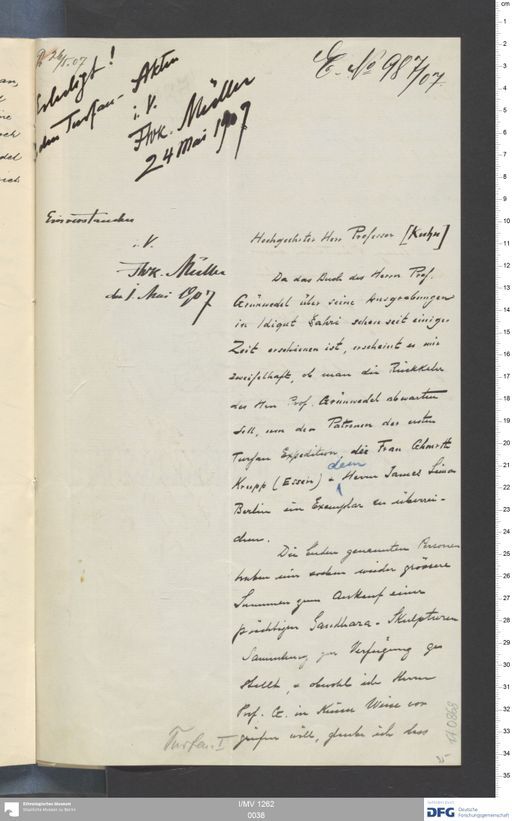 E. No 987/07.
24/5.07
Erledigt!
den Turfan-Akten
i. V.
FWK. Müller
24 Mai 1907
Einverstanden
i. V.
FWK. Müller
den 1. Mai 1907
Hochgeehrter Herr Professor [Kuhn]
Da das Buch des Herrn Prof.
Grünwedel über seine Ausgrabungen
in Idigut Sahri schon seit einiger
Zeit erschienen ist, erscheint es mir
zweifelhaft, ob man die Rückkehr
des Herrn Prof. Grünwedel abwarten
soll, um den Patronen der ersten
Turfan Expedition, der Frau
Krupp (Essen) u dem Herrn James Simon
Berlin ein Exemplar zu überrei-
chen.
Die beiden genannten Personen
haben uns soeben wieder grössere
Summen zum Ankauf einer
prächtigen Gandhara-Skulpturen
Sammlung zur Verfügung ge
stellt, u obwohl ich Herrn
Prof. G. in keiner Weise vor
greifen will, glaube ich dass
Turfan I
35
I/MV 1262
0038
Ethnologisches Museum
Staatliche Museen zu Berlin
DFG Deutsche
Forschungsgemeinschaft
cm
1
2
3
4
5
6
7
8
9
10
11
12
13
14
15
16
17
18
19
20
21
22
23
24
25
26
27
28
29
30
31
32
33
34
35